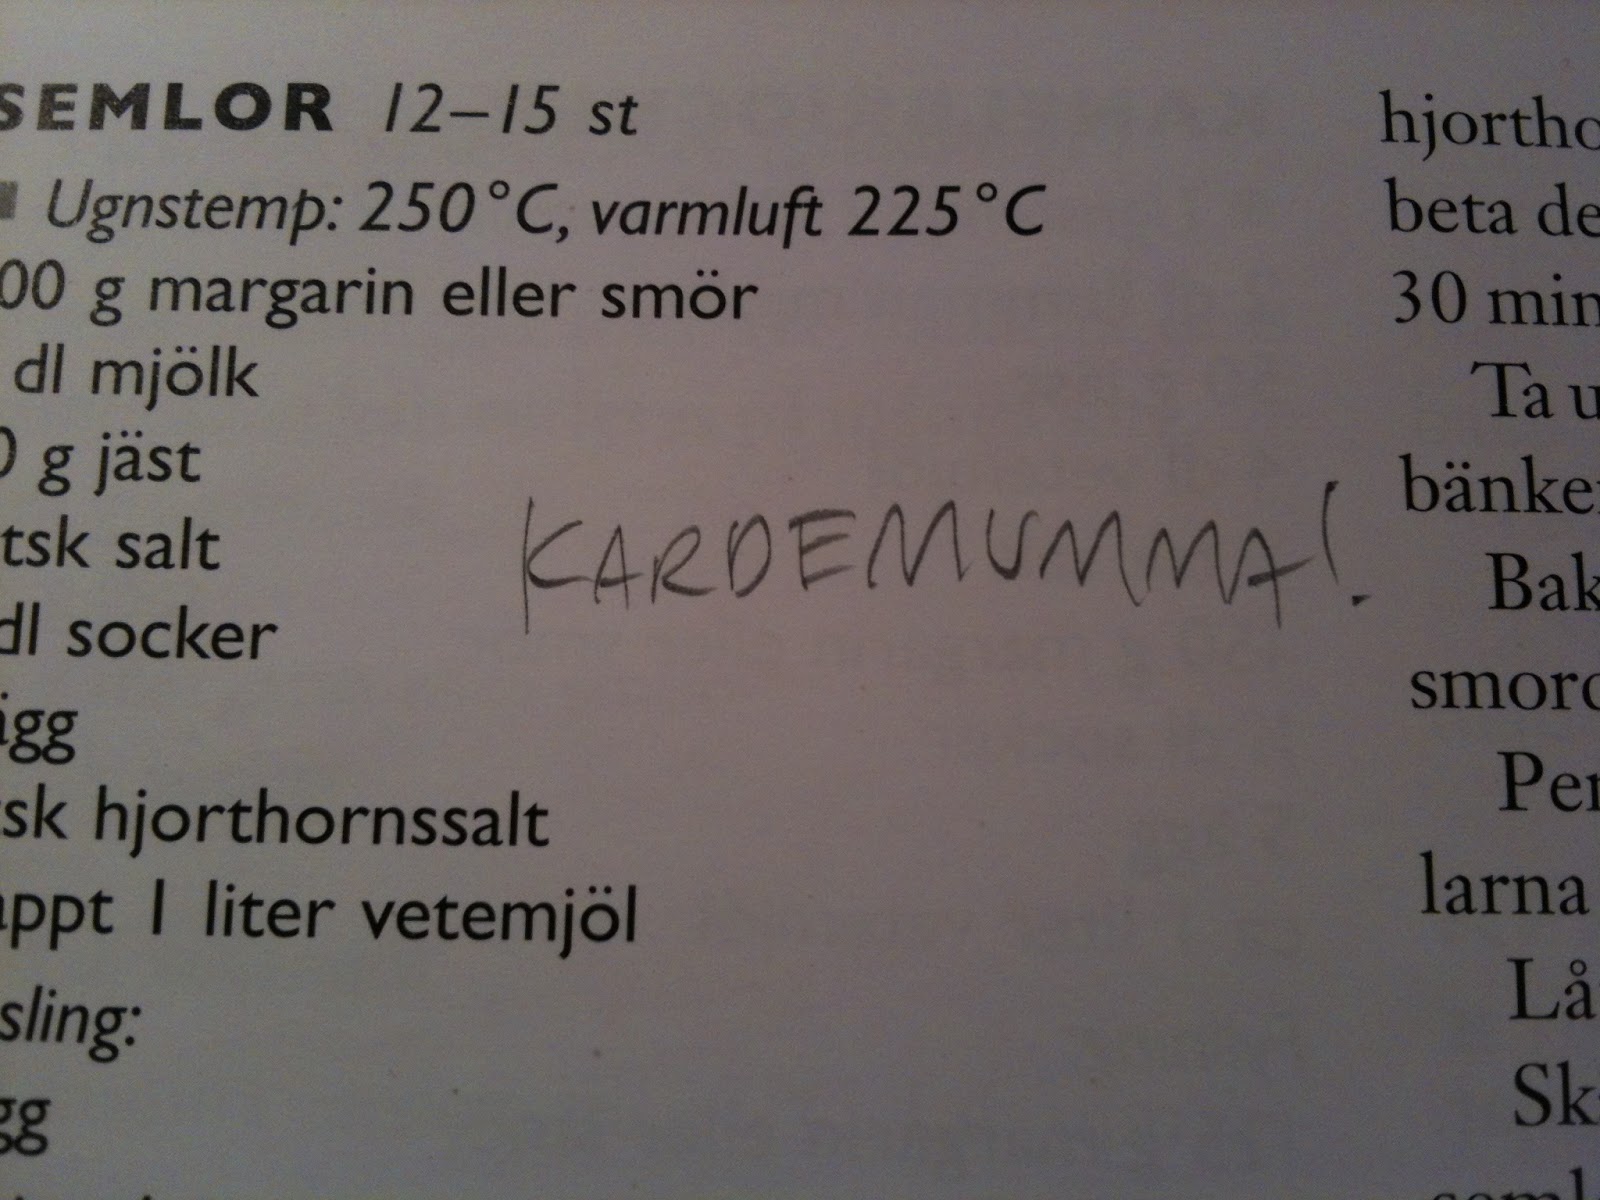 SEMLOR 12–15 st
Ugnstemp: 250°C, varmluft 225°C
00 g margarin eller smör
dl mjölk
0 g jäst
tsk salt
dl socker
ägg
tsk hjorthornssalt
appt 1 liter vetemjöl
sling:
gg
KARDEMUMMA!
hjortho
beta de
30 min
Ta u
bänke
Bak
smord
Pe
larna
Lå
Sk